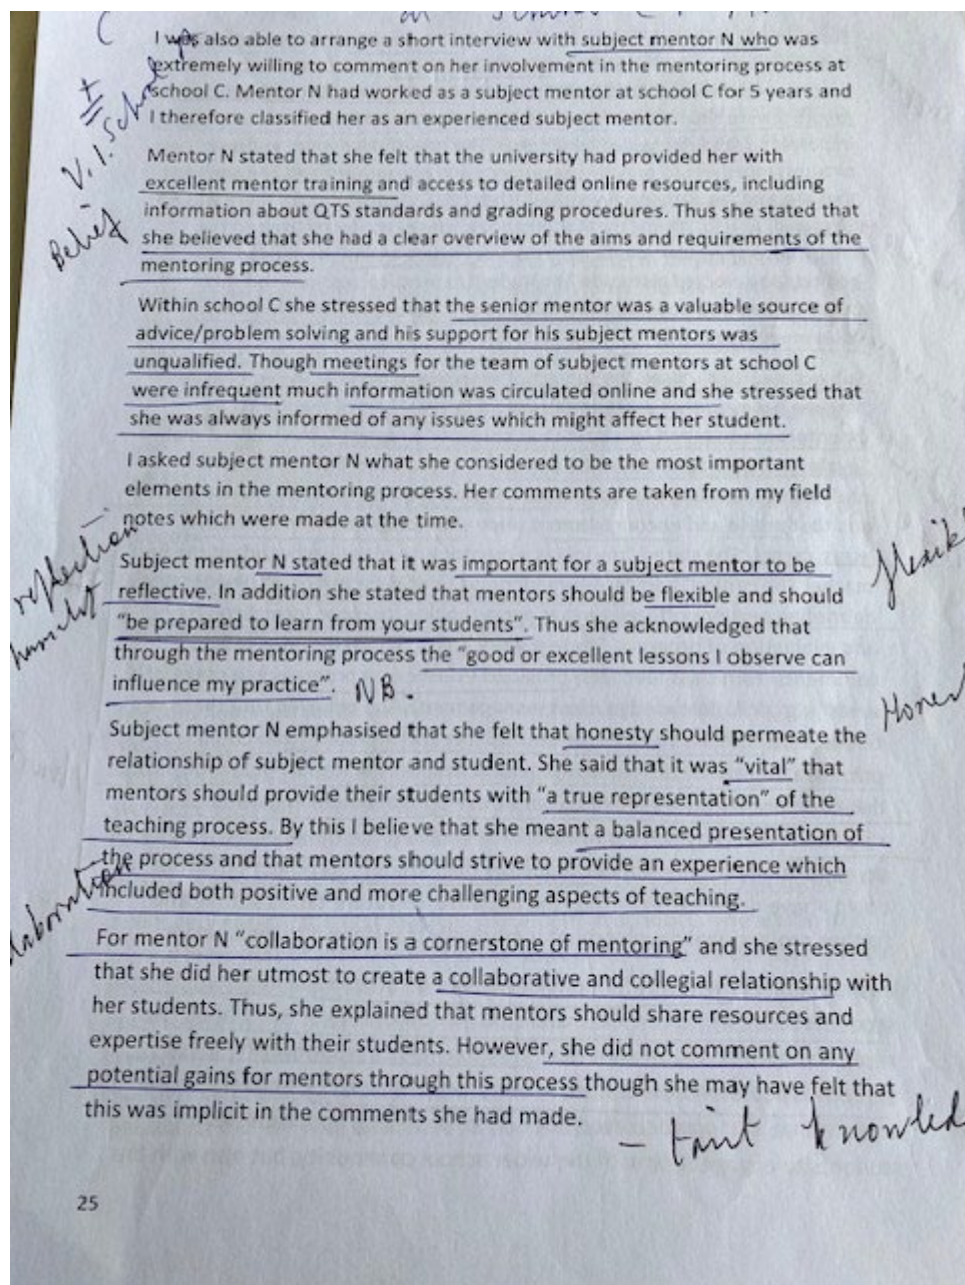 C
I was also able to arrange a short interview with subject mentor N who was
extremely willing to comment on her involvement in the mentoring process at
school C. Mentor N had worked as a subject mentor at school C for 5 years and
I therefore classified her as an experienced subject mentor.
±
V.I. School
Mentor N stated that she felt that the university had provided her with
excellent mentor training and access to detailed online resources, including
information about QTS standards and grading procedures. Thus she stated that
Belief
she believed that she had a clear overview of the aims and requirements of the
mentoring process.
Within school C she stressed that the senior mentor was a valuable source of
advice/problem solving and his support for his subject mentors was
unqualified. Though meetings for the team of subject mentors at school C
were infrequent much information was circulated online and she stressed that
she was always informed of any issues which might affect her student.
I asked subject mentor N what she considered to be the most important
elements in the mentoring process. Her comments are taken from my field
notes which were made at the time.
reflection
Subject mentor N stated that it was important for a subject mentor to be
reflective. In addition she stated that mentors should be flexible and should
"be prepared to learn from your students". Thus she acknowledged that
through the mentoring process the "good or excellent lessons I observe can
influence my practice". NB.
Subject mentor N emphasised that she felt that honesty should permeate the
relationship of subject mentor and student. She said that it was "vital" that
mentors should provide their students with "a true representation" of the
teaching process. By this I believe that she meant a balanced presentation of
the process and that mentors should strive to provide an experience which
included both positive and more challenging aspects of teaching.
For mentor N "collaboration is a cornerstone of mentoring" and she stressed
that she did her utmost to create a collaborative and collegial relationship with
her students. Thus, she explained that mentors should share resources and
expertise freely with their students. However, she did not comment on any
potential gains for mentors through this process though she may have felt that
this was implicit in the comments she had made.
25